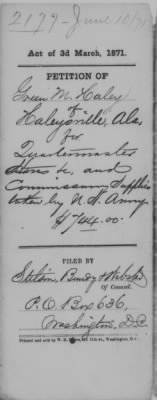 2179 - June 10/71
Act of 3d March, 1871.
PETITION OF
Green M. Haley
of
Haleysville, Ala,
for
Quartermaster
Stores &c, and
Commissary Supplies
taken by U.S. Army.
$744.00.
FILED BY
Stilson, Bundy & Webster
Of Counsel.
P.O. Box 636,
Washington, D.C.
Printed and sold by W. H. 11th st., Washington, D. C.